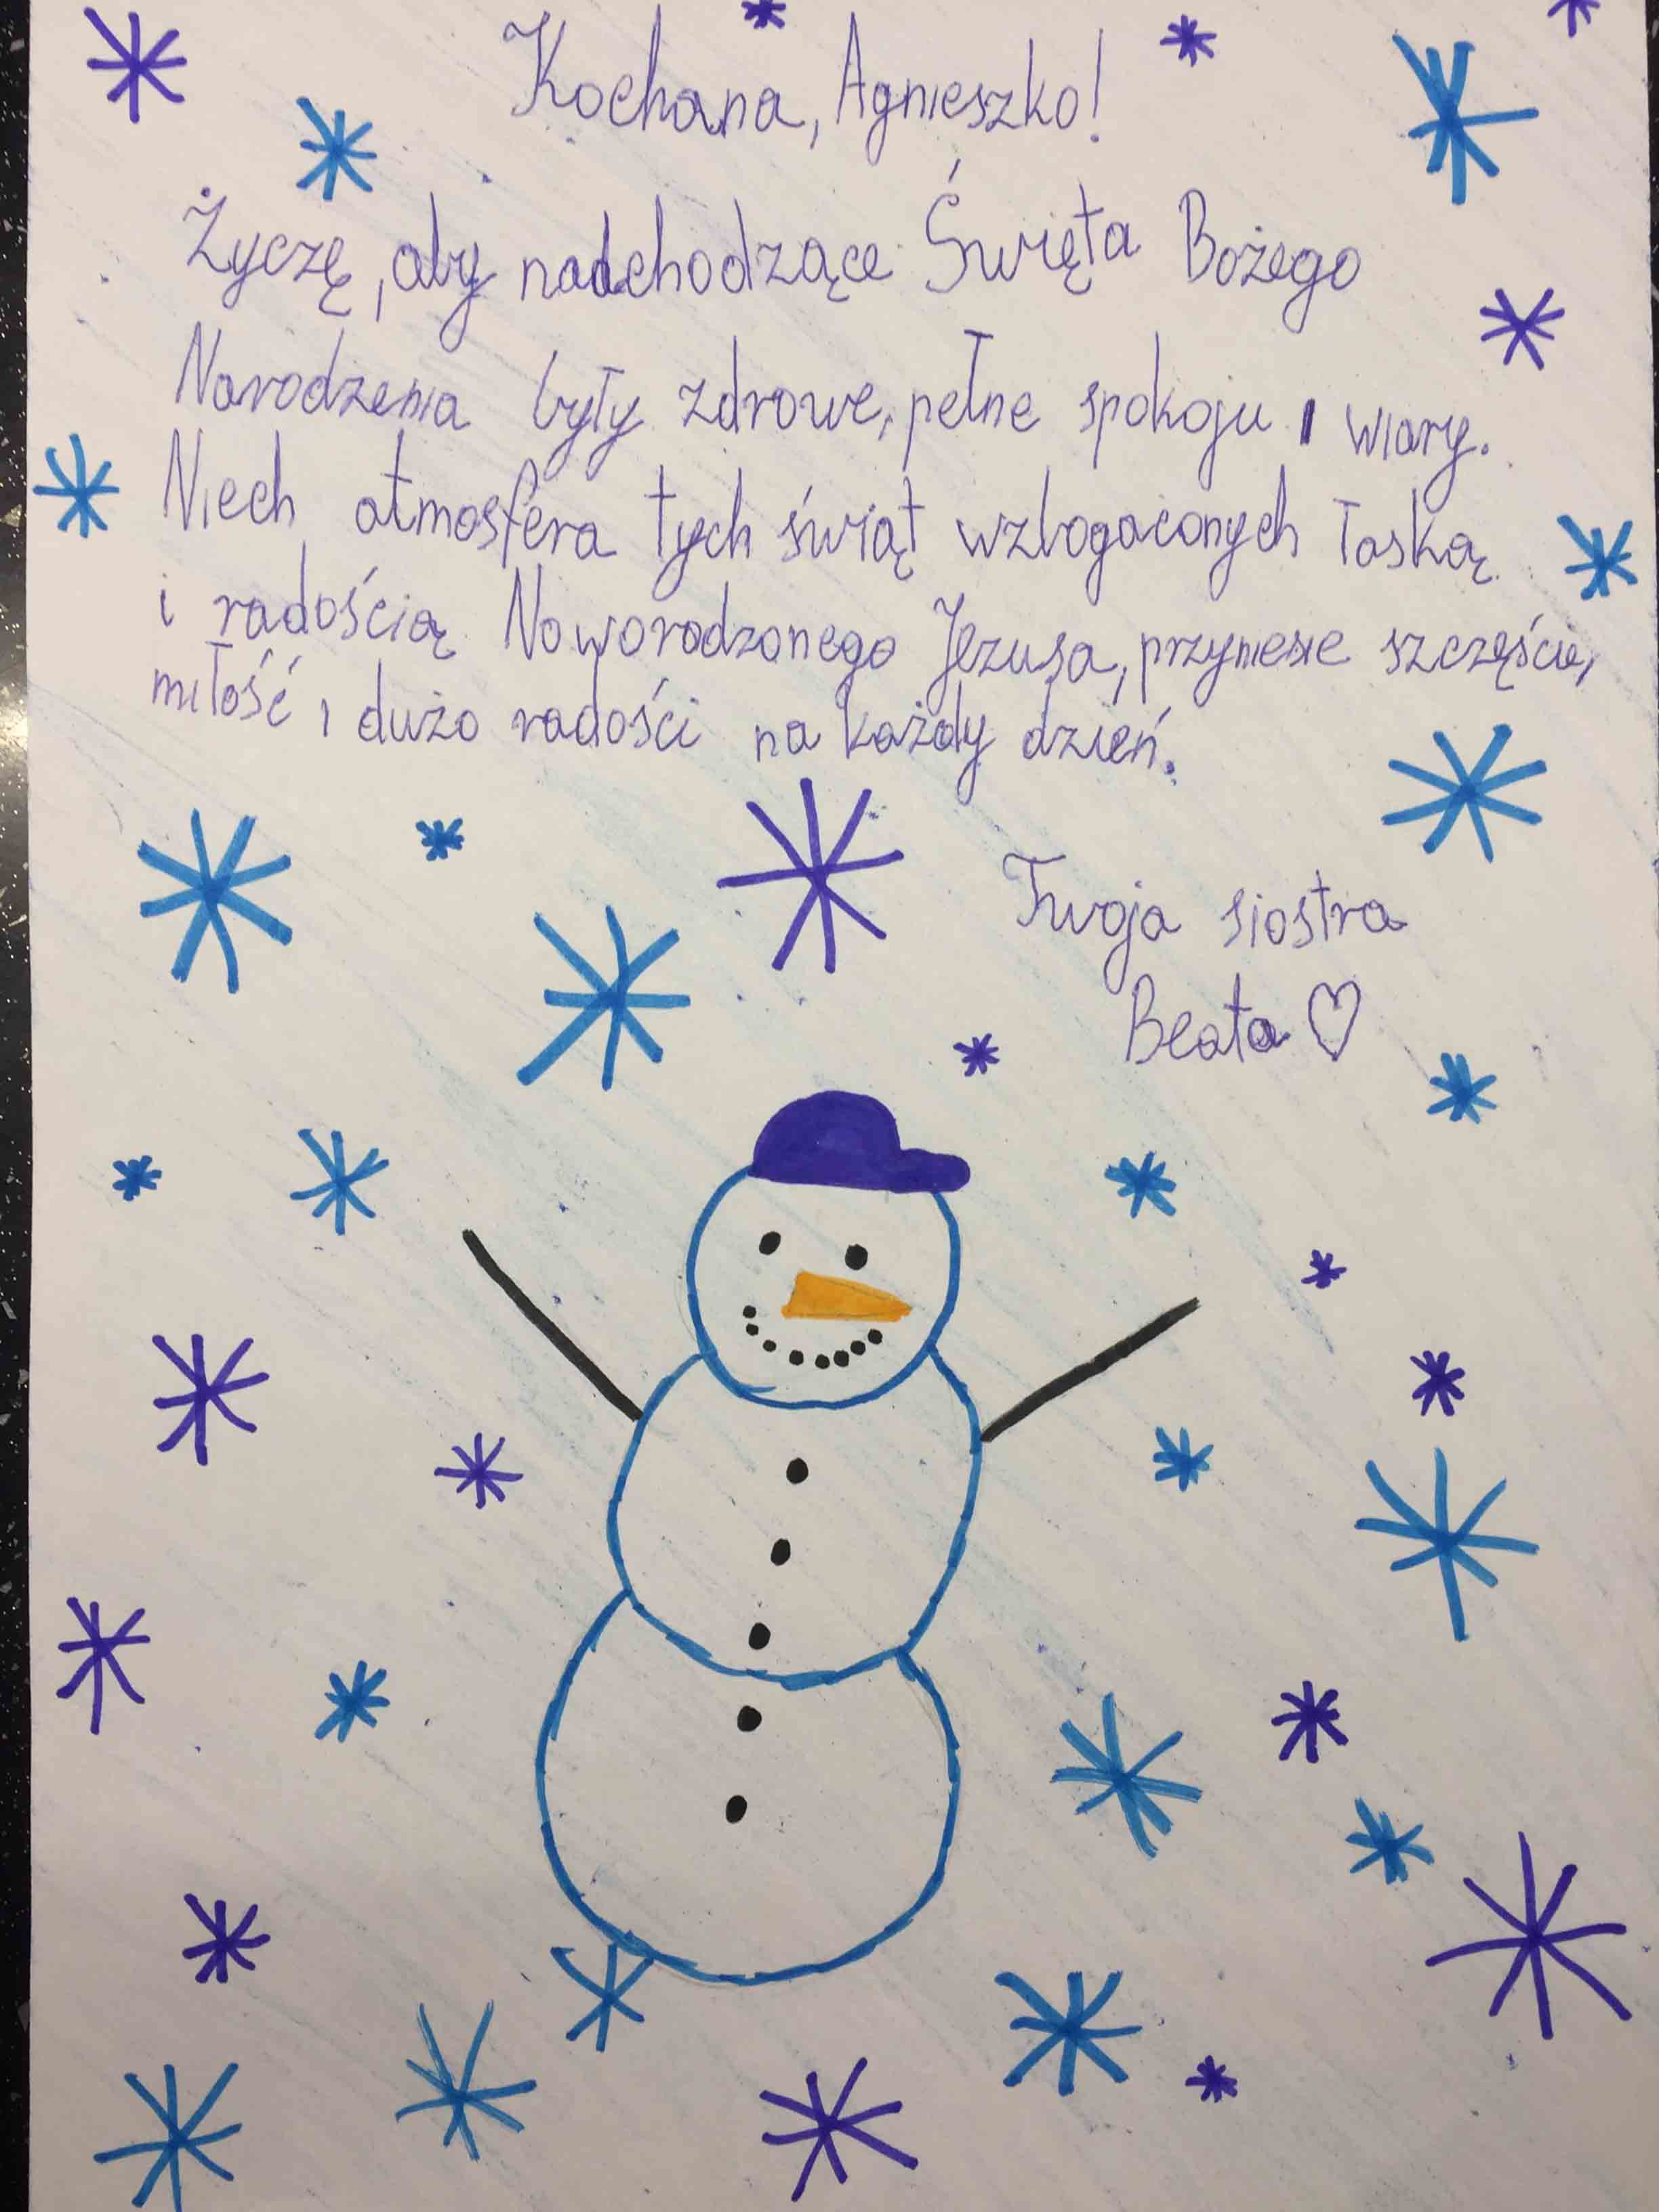 Kochana, Agnieszko!
Życzę, aby nadchodzące Święta Bożego
Narodzenia były zdrowe, pełne spokoju i wiary.
Niech atmosfera tych świąt wzbogaconych łaską
i radością Noworodzonego Jezusa, przyniesie szczęście,
miłość i dużo radości na każdy dzień.
Twoja siostra
Beata ♡